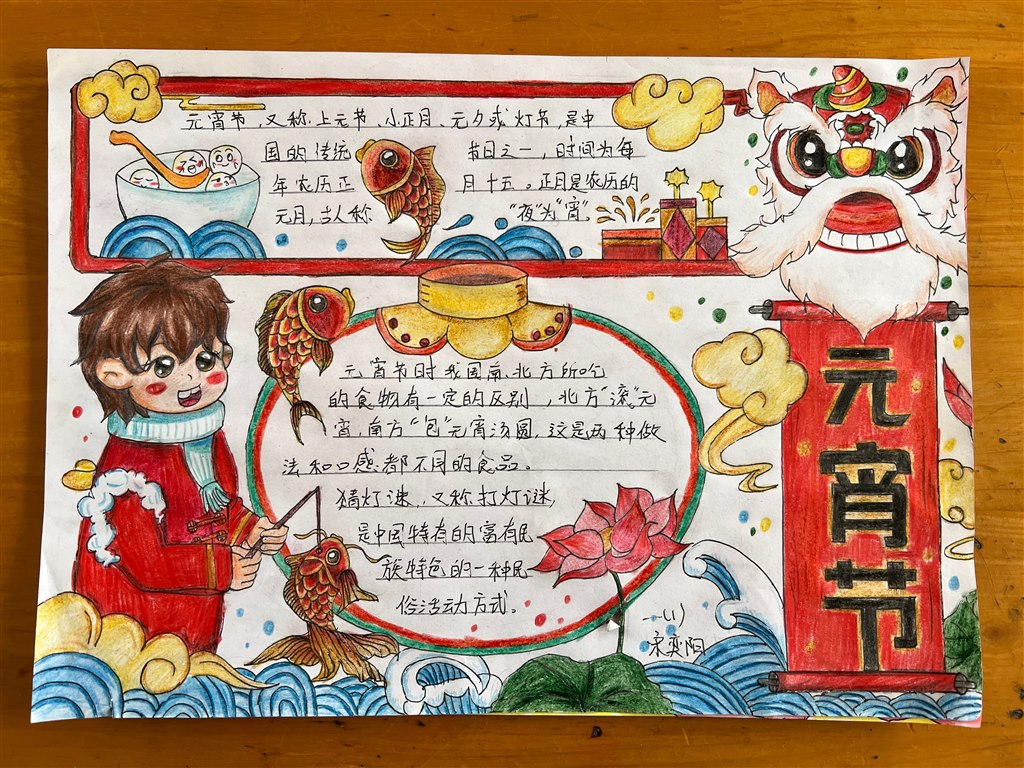 元宵节,又称上元节、小正月、元夕或灯节,是中
国的传统节日之一,时间为每
年农历正月十五。正月是农历的
元月,古人称“夜”为“宵”
元宵节时我国南北方所吃
的食物有一定的区别,北方“滚”元
宵,南方“包”元宵汤圆,这是两种做
法和口感都不同的食品。
猜灯谜,又称打灯谜,
是中国特有的富有民
族特色的一种民
俗活动方式。
一(1)
宋奕阳
元宵节